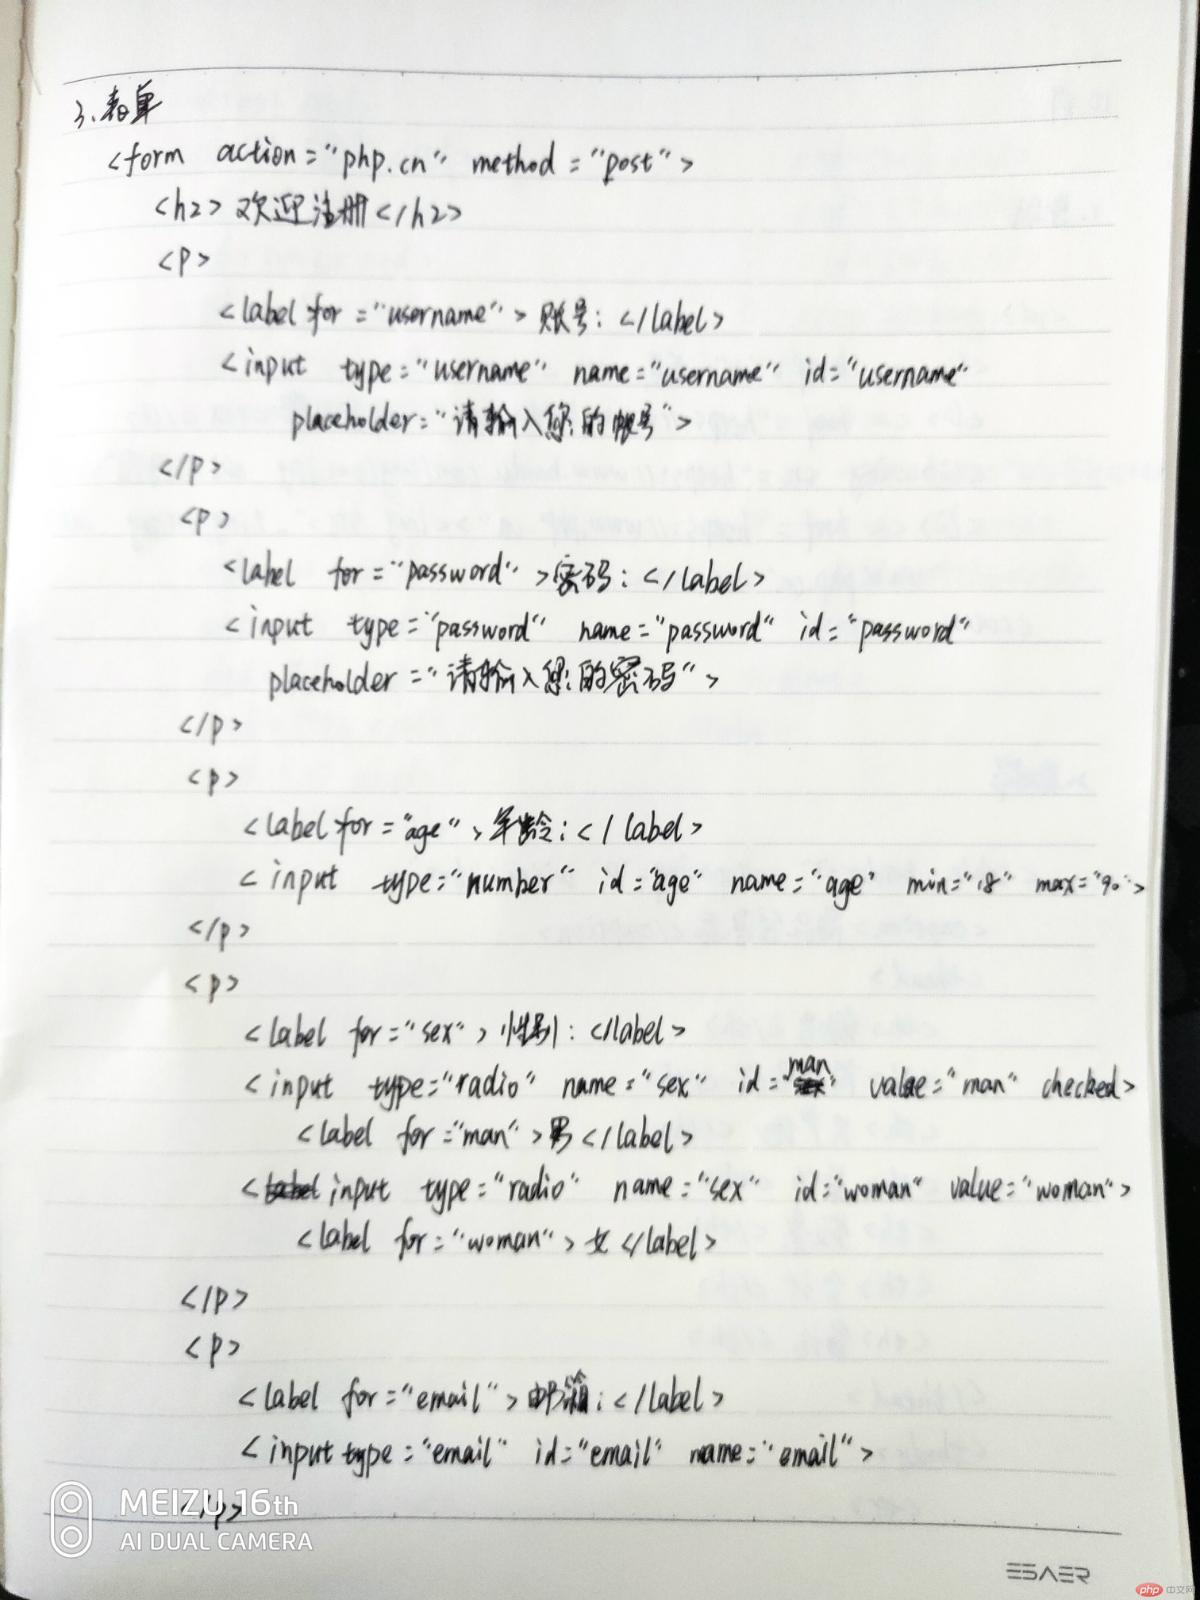 3、表单
<form action="php.cn" method="post">
<h2>欢迎注册</h2>
<p>
<label for="username">账号:</label>
<input type="username" name="username" id="username"
placeholder="请输入您的帐号">
</p>
<p>
<label for="password">密码:</label>
<input type="password" name="password" id="password"
placeholder="请输入您的密码">
</p>
<p>
<label for="age">年龄:</label>
<input type="number" id="age" name="age" min="18" max="90">
</p>
<p>
<label for="sex">性别:</label>
<input type="radio" name="sex" id="man" value="man" checked>
<label for="man">男</label>
<input type="radio" name="sex" id="woman" value="woman">
<label for="woman">女</label>
</p>
<p>
<label for="email">邮箱:</label>
<input type="email" id="email" name="email">
</p>
MEIZU 16th
AI DUAL CAMERA
ESAER
php 中文网